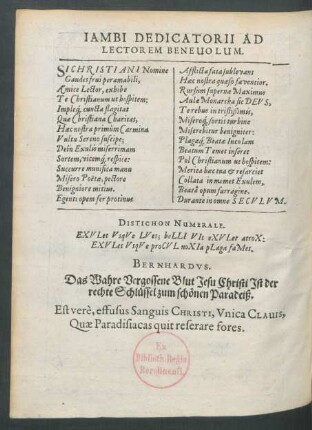 IAMBI DEDICATORII AD
LECTOREM BENEVOLUM.
SI CHRISTIANI Nomine
Gaudet frui peramabili,
Amice Lector, exhibe
Te Christianum ut hospitem:
Impleq́, cuncta flagitat
Quæ Christiana Charitas,
Hac nostra primùm Carmina
Vultu Sereno suscipe;
Dein Exulis miserrimam
Sortem, vicemq́, respice:
Succurre monstica manu
Misero Poëtæ, pectore
Benigniore mitiori.
Egenti opem fer protinus
Afflicta fata sublevans
Hac nostra quaso faventior.
Rursum superna Maximus
Aulæ Monarcha sic DEVS,
Te rebus in tristissimis,
Miseroq́, fortis turbine
Miserebitur benigniter:
Plagaq́, Beatæ Inclam
Beatum Temet inseret
Pol Christianum ut hospitem:
Merita hac tua & refarciet
Collata in memet Exulem,
Beatâ opum farragine.
Durante in omne SECULUM.
DISTICHON NUMERALE.
EXVLet VsqVe LVes; beLLI VIs eXVLet atroX:
EXVLet VsqVe proCVL noXIa pLaga faMet.
BERNHARDVS.
Das Wahre Vergossene Blut Jesu Christi Ist der
rechte Schlüssel zum schönen Paradeiß.
Est verè, effusus Sanguis CHRISTI, Vnica CLAVIS,
Quæ Paradisiacas quit reserare fores.
Ex
Biblioth. Regia
Berolinensi.